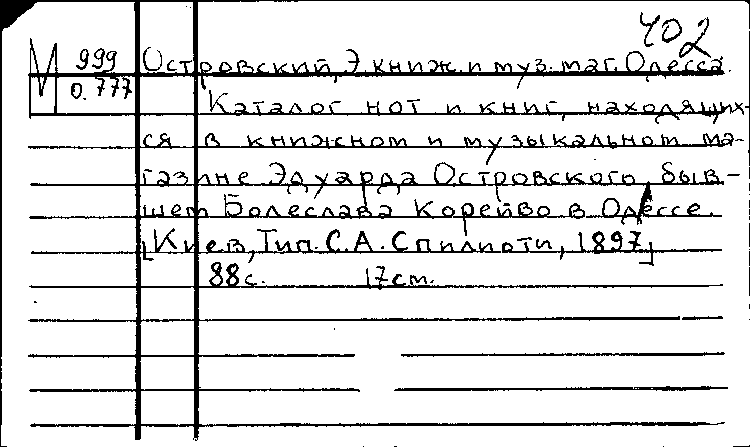 402
М 999
О. 777
Островский, Э. книж. и муз. маг. Одесса.
Каталог нот и книг, находящих-
ся в книжном и музыкальном ма-
газине Эдуарда Островского, быв-
шем Болеслава Корейво в Одессе.
[Киев, Тип. С. А. Спилиоти, 1897]
88 с. 17 см.